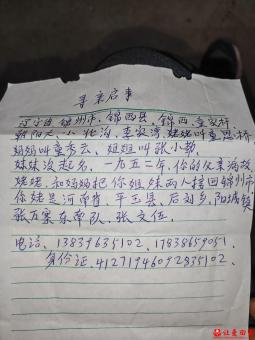 寻亲启事
辽宁省锦州市,锦西县,锦西,董家行
朝阳天,小北沟,李家湾,姥姥叫董恩桥
妈妈叫董秀云,姐姐叫张小勤
妹妹没起名,一九五二年,你的父亲病故
姥姥,和妈妈把你姐妹两人接回锦州市
你姥是河南省,平玉县,后刘乡,阳城镇
张五寨东南队,张文伍,
电话,13839635102,17838659051,
身份证,41271946092835102,
让爱回家